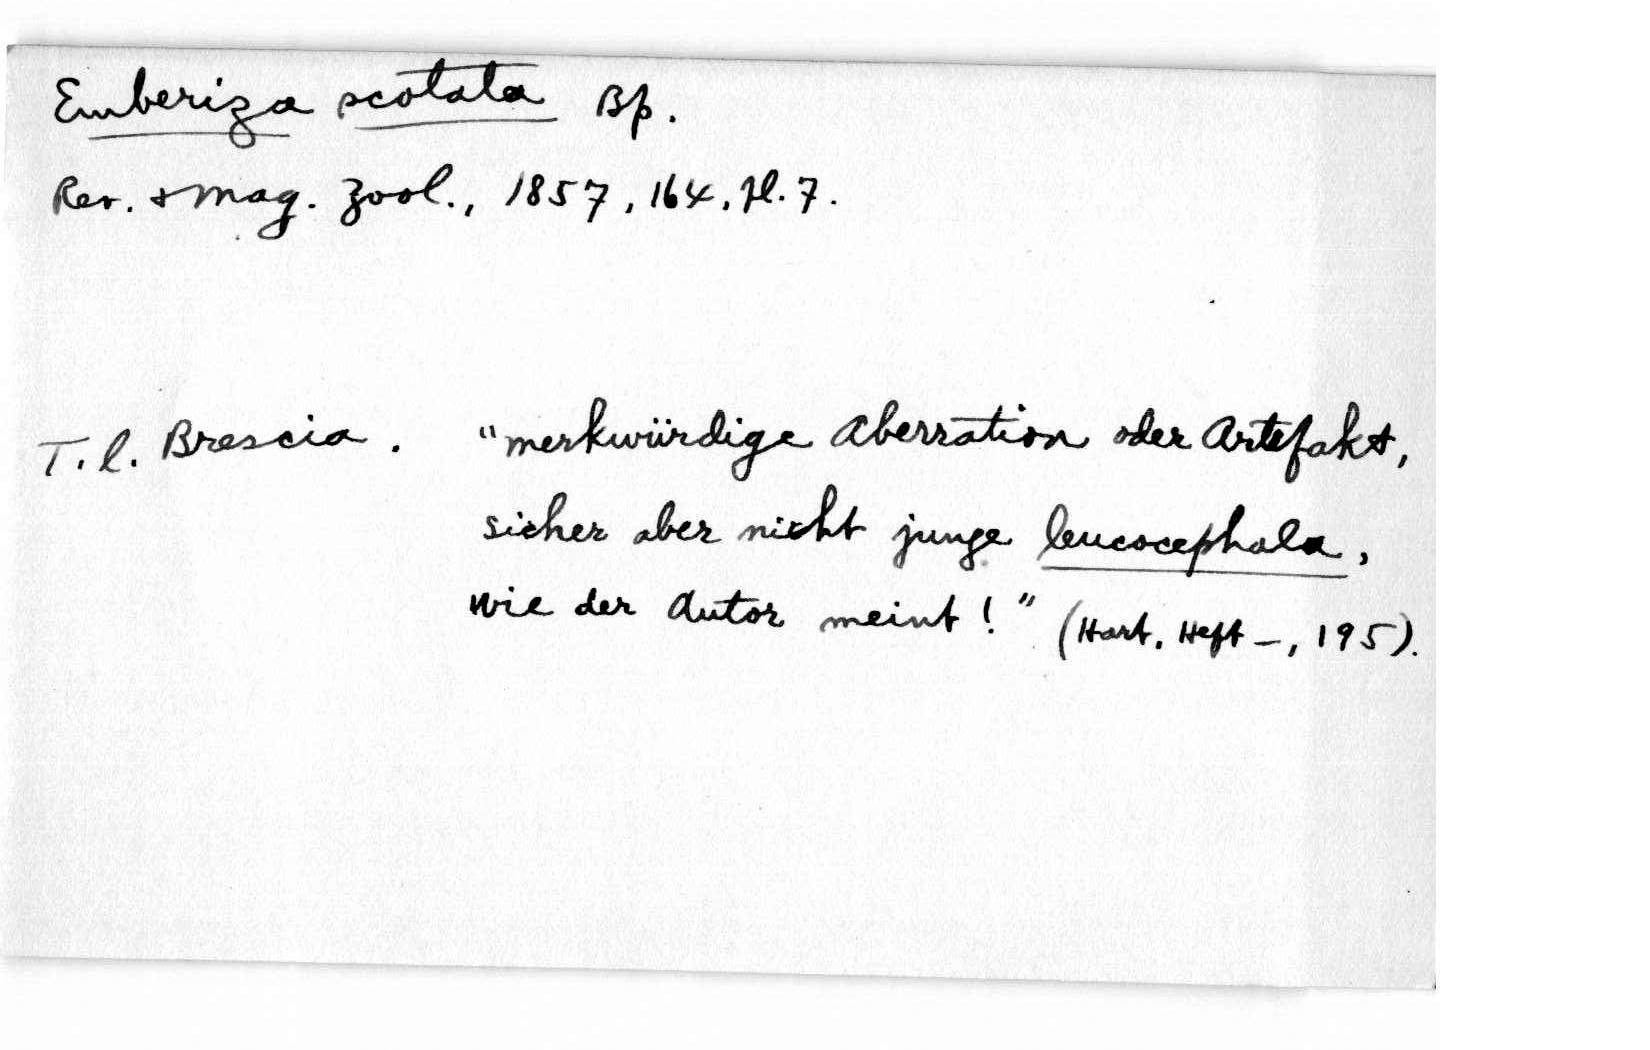 Emberiza scotata Bp.
Rev. & Mag. Zool., 1857, 164, Pl. 7.
T. l. Brescia. "merkwürdige Aberration oder Artefakt,
sicher aber nicht junge leucocephala,
wie der Autor meint!" (Hart. Heft –, 195).